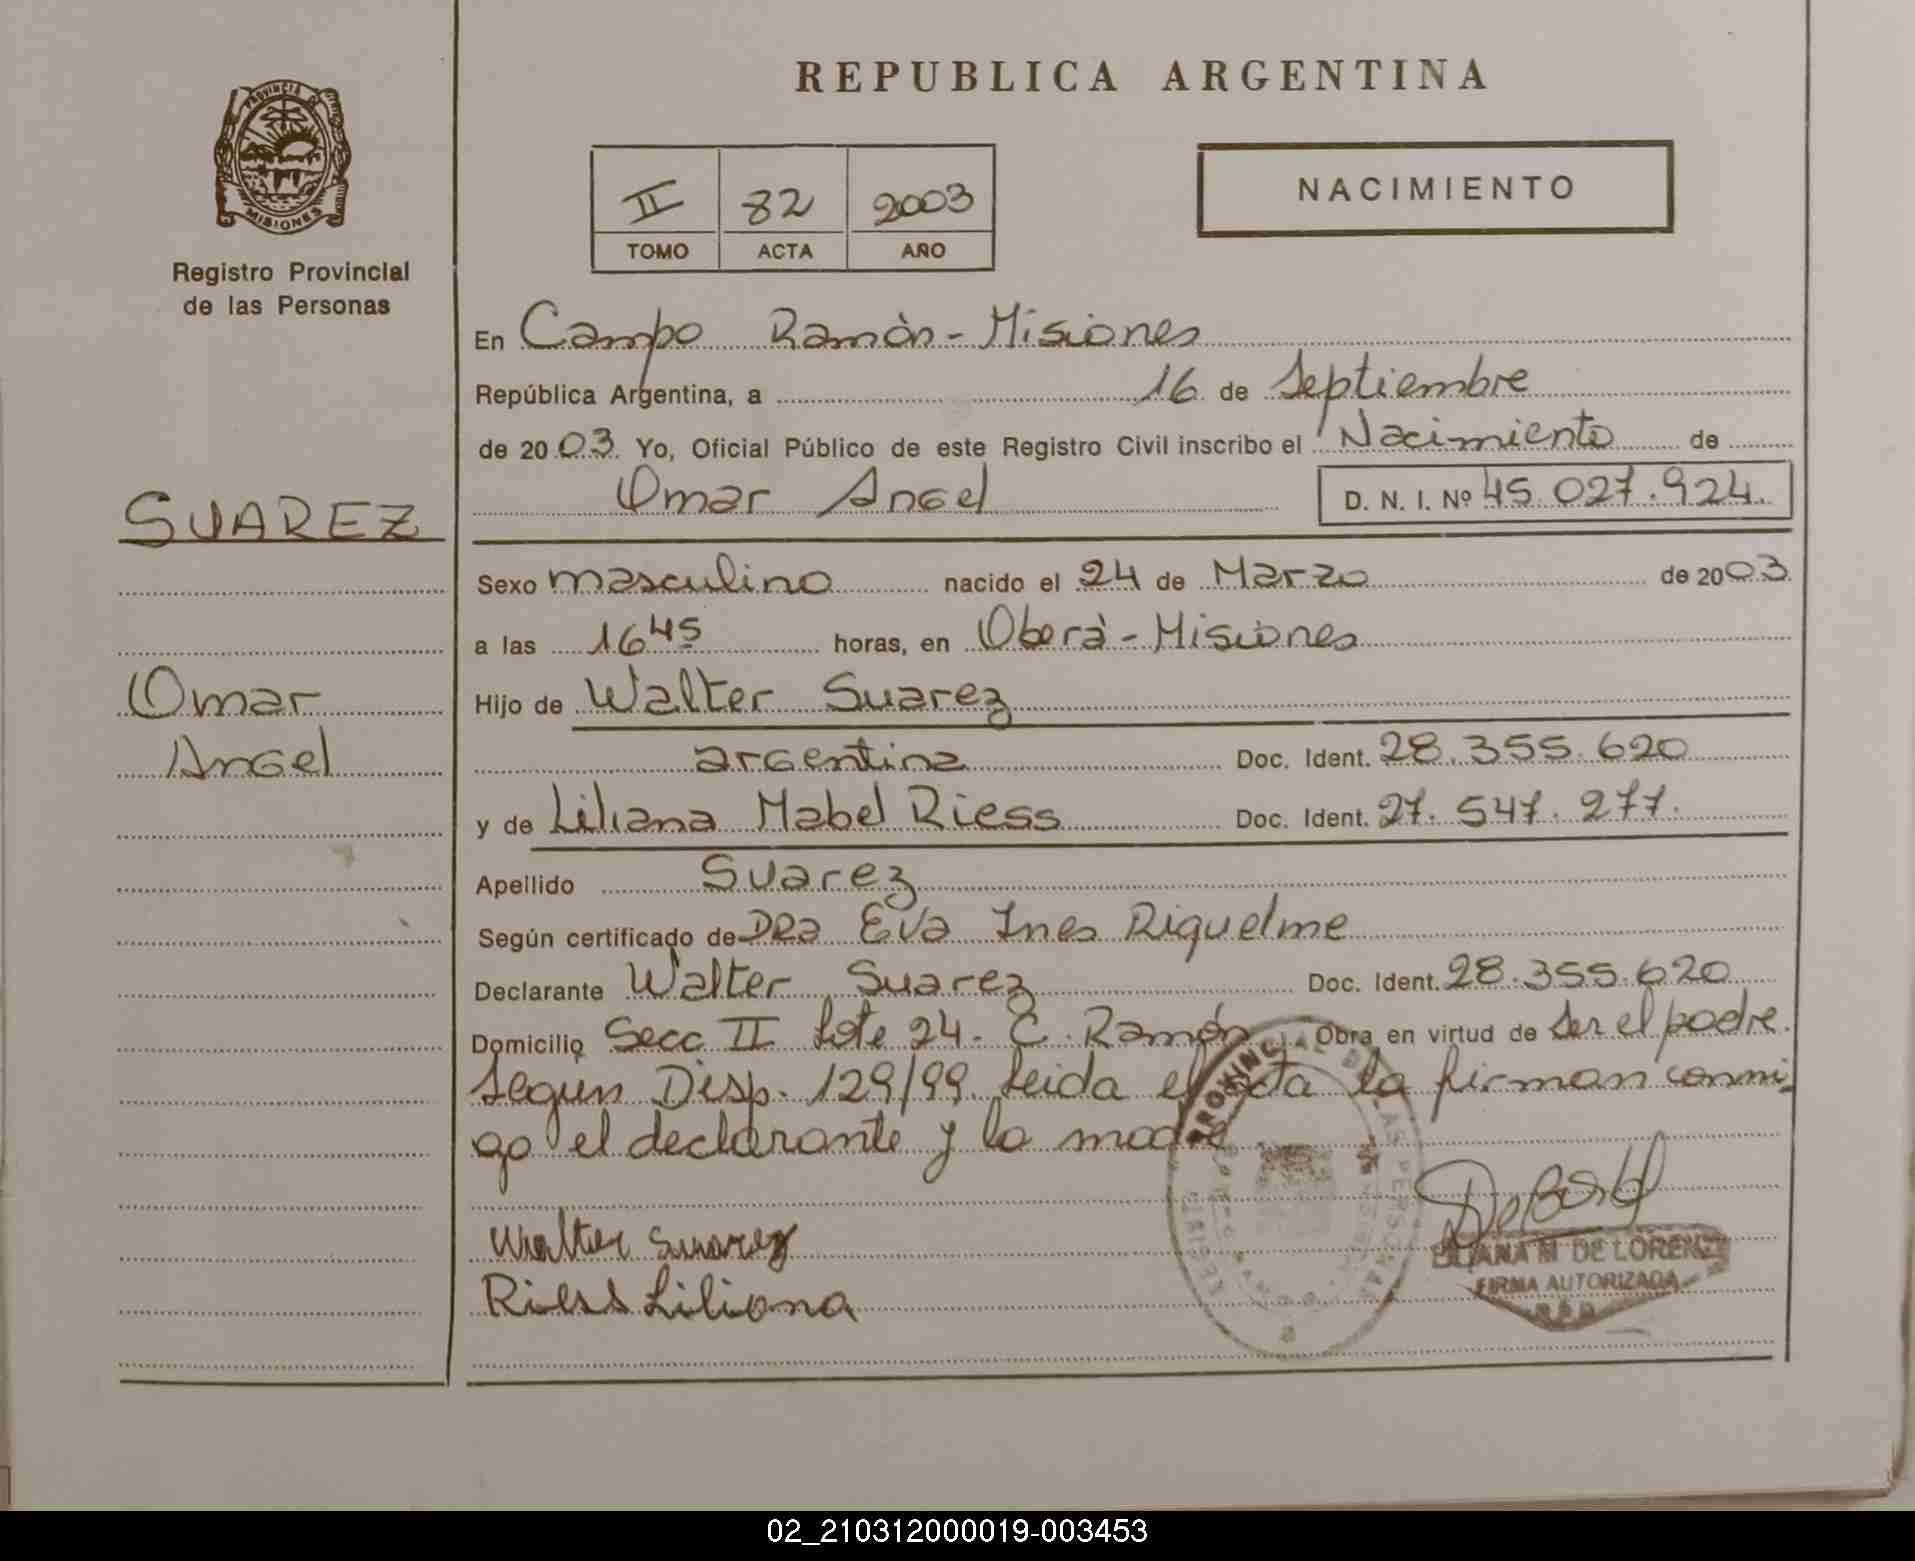 REPUBLICA ARGENTINA
PROVINCIA DE
MISIONES
Registro Provincial
de las Personas
II 82 2003
TOMO ACTA AÑO
NACIMIENTO
En Campo Ramón - Misiones
República Argentina, a 16 de Septiembre
de 2003. Yo, Oficial Público de este Registro Civil inscribo el Nacimiento de
Omar Angel D. N. I. Nº 45.027.924.
SUAREZ
Omar
Angel
Sexo masculino nacido el 24 de Marzo de 2003
a las 16 45 horas, en Oberá - Misiones
Hijo de Walter Suarez
argentina Doc. Ident. 28.355.620
y de Liliana Mabel Riess Doc. Ident. 27.547.277.
Apellido Suarez
Según certificado de DRa Eva Ines Riquelme
Declarante Walter Suarez Doc. Ident. 28.355.620
Domicilio Secc II Lote 24 - C. Ramón Obra en virtud de ser el padre.
Según Disp. 129/99. Leida el acta la firman conmi-
go el declarante y la madre
Walter Suarez
Riess Liliana
PROVINCIAL DE LAS PERSONAS
LILIANA M DE LORENZI
FIRMA AUTORIZADA
02_210312000019-003453